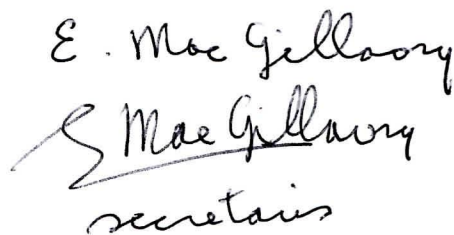 E. Mac Gillavry
E Mac Gillavry
secretaris